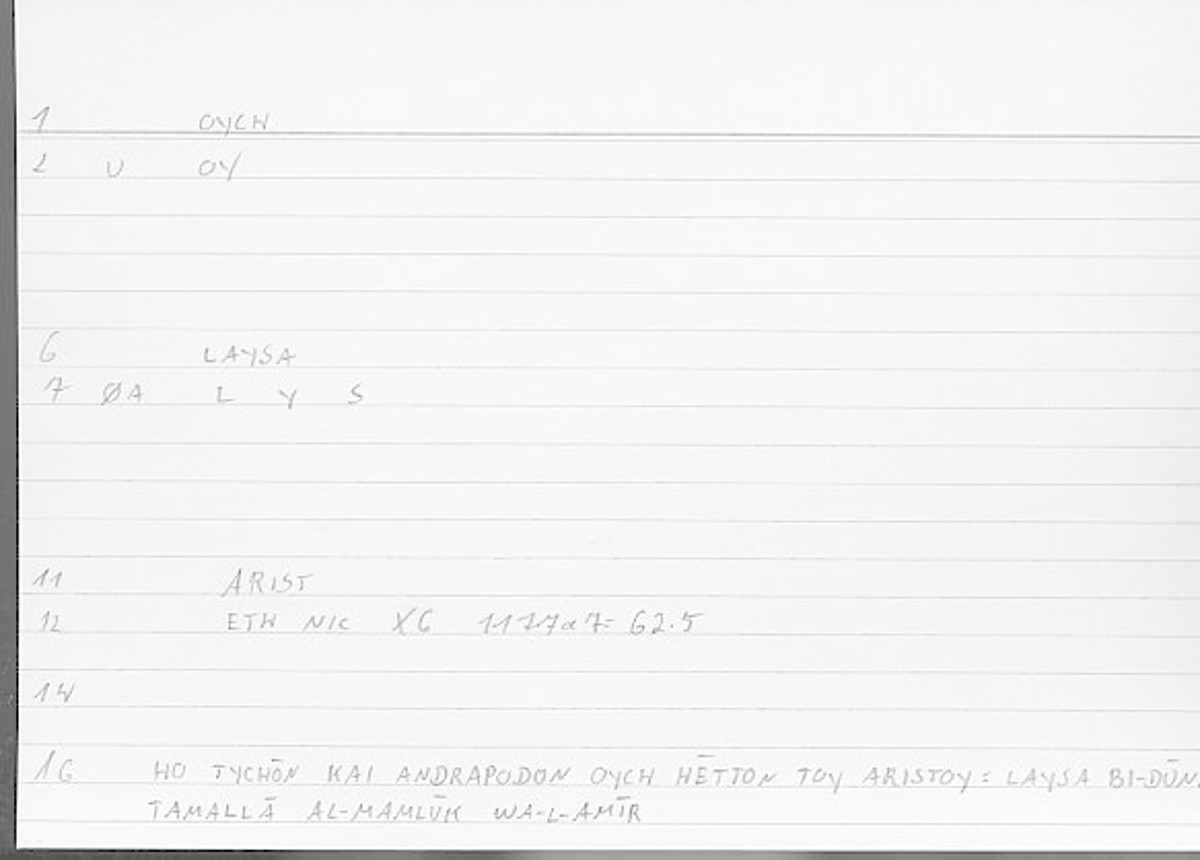 1 OYCH
2 U OY
6 LAYSA
7 ØA L Y S
11 ARIST
12 ETH NIC X6 1177a7= 62.5
14
16 HO TYCHŌN KAI ANDRAPODON OYCH HĒTTON TOY ARISTOY = LAYSA BI-DŪN
TAMALLĀ AL-MAMLŪK WA-L-AMĪR